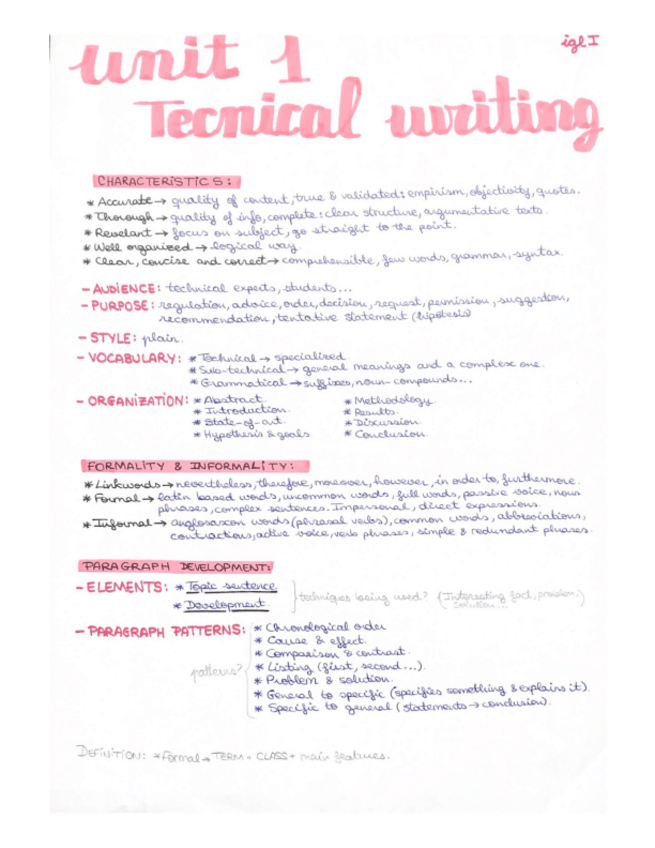 igl I
unit 1
Tecnical writing
CHARACTERISTICS:
* Accurate → quality of content, true & validated: empirism, objectivity, quotes.
* Thorough → quality of info, complete: clear structure, argumentative texts.
* Revelant → focus on subject, go straight to the point.
* Well organized → logical way.
* Clear, concise and correct → comprehensible, few words, grammar, syntax.
- AUDIENCE: technical experts, students...
- PURPOSE: regulation, advice, order, decision, request, permission, suggestion,
recommendation, tentative statement (hipotesis)
- STYLE: plain.
- VOCABULARY: * Technical → specialized.
* Sub-technical → general meanings and a complex one.
* Grammatical → suffixes, noun-compounds...
- ORGANIZATION: * Abstract. * Methodology.
* Introduction. * Results.
* State-of-art. * Discussion.
* Hypothesis & goals. * Conclusion.
FORMALITY & INFORMALITY:
* Linkwords → nevertheless, therefore, moreover, however, in order to, furthermore.
* Formal → latin based words, uncommon words, full words, passive voice, noun
phrases, complex sentences. Impersonal, direct expressions.
* Informal → anglosaxon words (phrasal verbs), common words, abbreviations,
contractions, active voice, verb phrases, simple & redundant phrases.
PARAGRAPH DEVELOPMENT:
- ELEMENTS: * Topic sentence
* Development.
techniques being used? (Interesting fact, problem,
solution...)
- PARAGRAPH PATTERNS: * Chronological order
* Cause & effect.
* Comparison & contrast.
patterns? * Listing (first, second...).
* Problem & solution.
* General to specific (specifies something & explains it).
* Specific to general (statements → conclusion).
DEFINITION: * Formal → TERM + CLASS + main features.